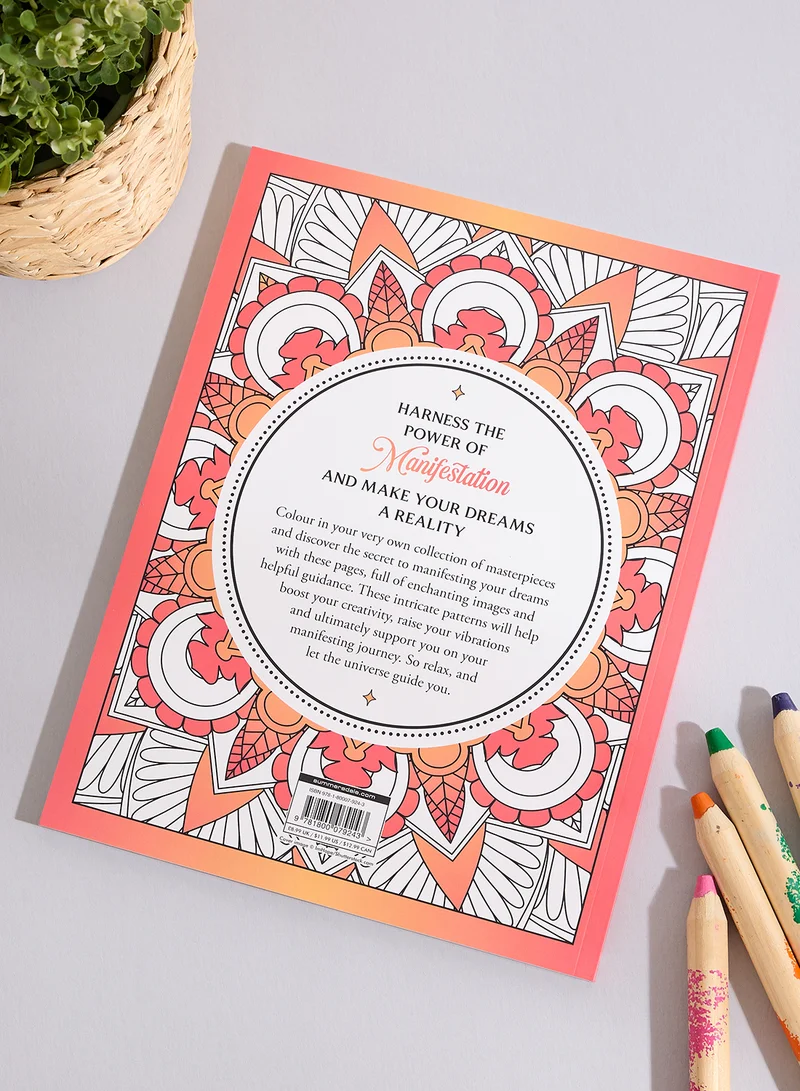 HARNESS THE
POWER OF
Manifestation
AND MAKE YOUR DREAMS
A REALITY
Colour in your very own collection of masterpieces
and discover the secret to manifesting your dreams
with these pages, full of enchanting images and
helpful guidance. These intricate patterns will help
boost your creativity, raise your vibrations
and ultimately support you on your
manifesting journey. So relax, and
let the universe guide you.
summersdale.com
ISBN 978-1-80007-924-3
9 781800 079243 >
£6.99 UK / $11.99 US / $12.99 CAN
Cover image ©